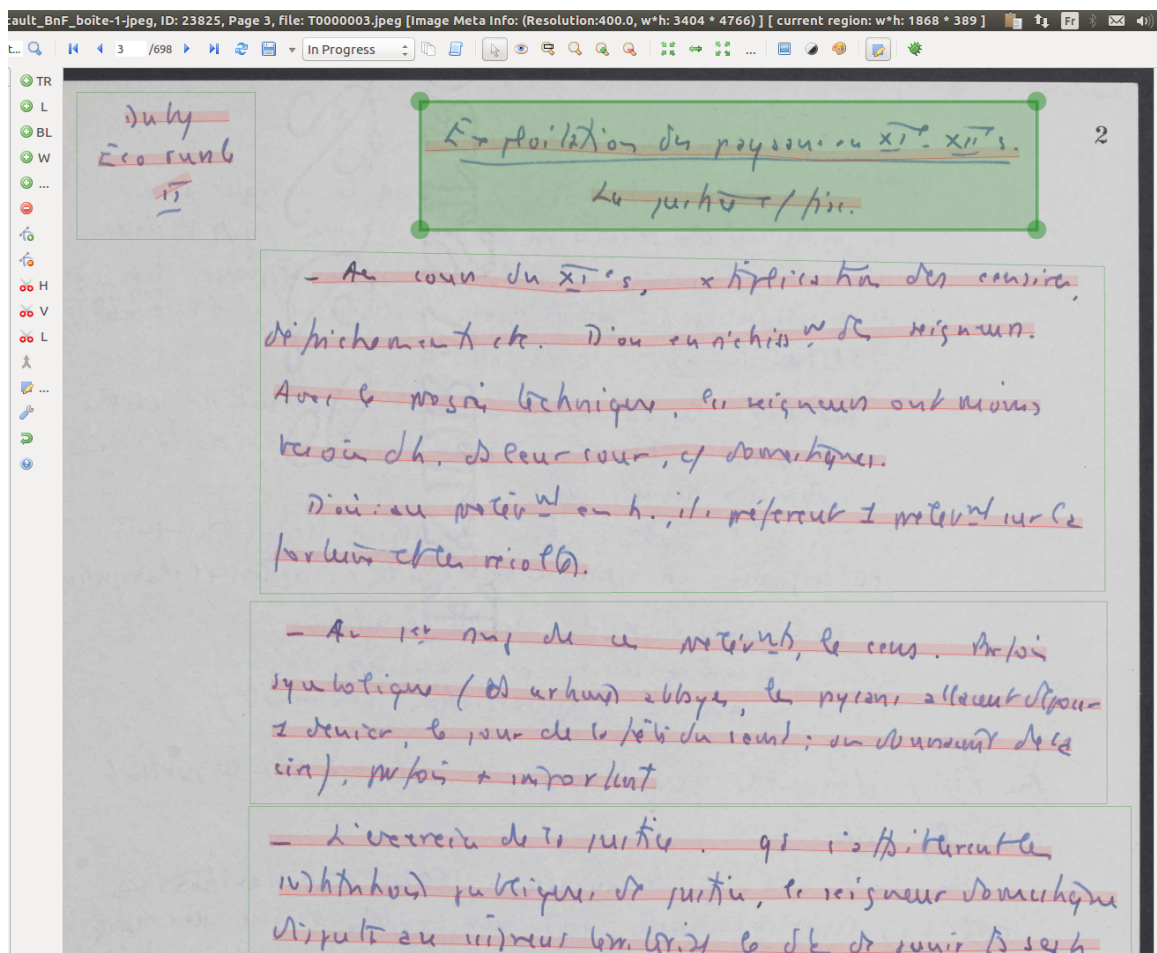 cault_BnF_boîte-1-jpeg, ID: 23825, Page 3, file: T0000003.jpeg [Image Meta Info: (Resolution:400.0, w*h: 3404 * 4766) ] [ current region: w*h: 1868 * 389 ]
Fr
t...
3 /698
In Progress
...
TR
L
BL
W
...
H
V
L
...
Duby
Eco rurale
II
2
Exploitation du paysan au XIe - XIIe s.
La justice / fisc.
- Au cours du XIe s, xtiplication des censives,
défrichement etc. D'où enrichisst des seigneurs.
Avec le progrès technique, les seigneurs ont moins
besoin d'h. ds leur cour, c/ domestiques.
D'où : au prélèvnt en h., ils préfèrent 1 prélèvnt sur la
fortune et les récoltes.
- Au 1er rang de ces prélèvnts, le cens. Parfois
symbolique (ds certaines abbayes, les paysans allaient déposer
1 denier, le jour de la fête du saint ; on donnait de la
cire), parfois + important
- L'exercice de la justice. qd s'effritèrent les
institutions publiques de justice, le seigneur domestique
disputa au seigneur territorial le dt de punir ds ses h